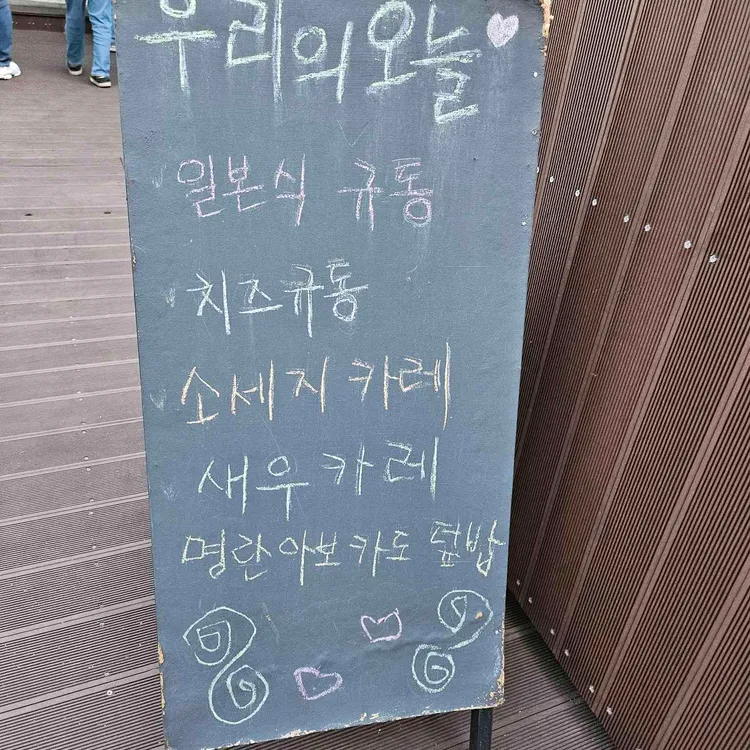 우리의 오늘
일본식 규동
치즈규동
소세지 카레
새우 카레
명란아보카도 덮밥